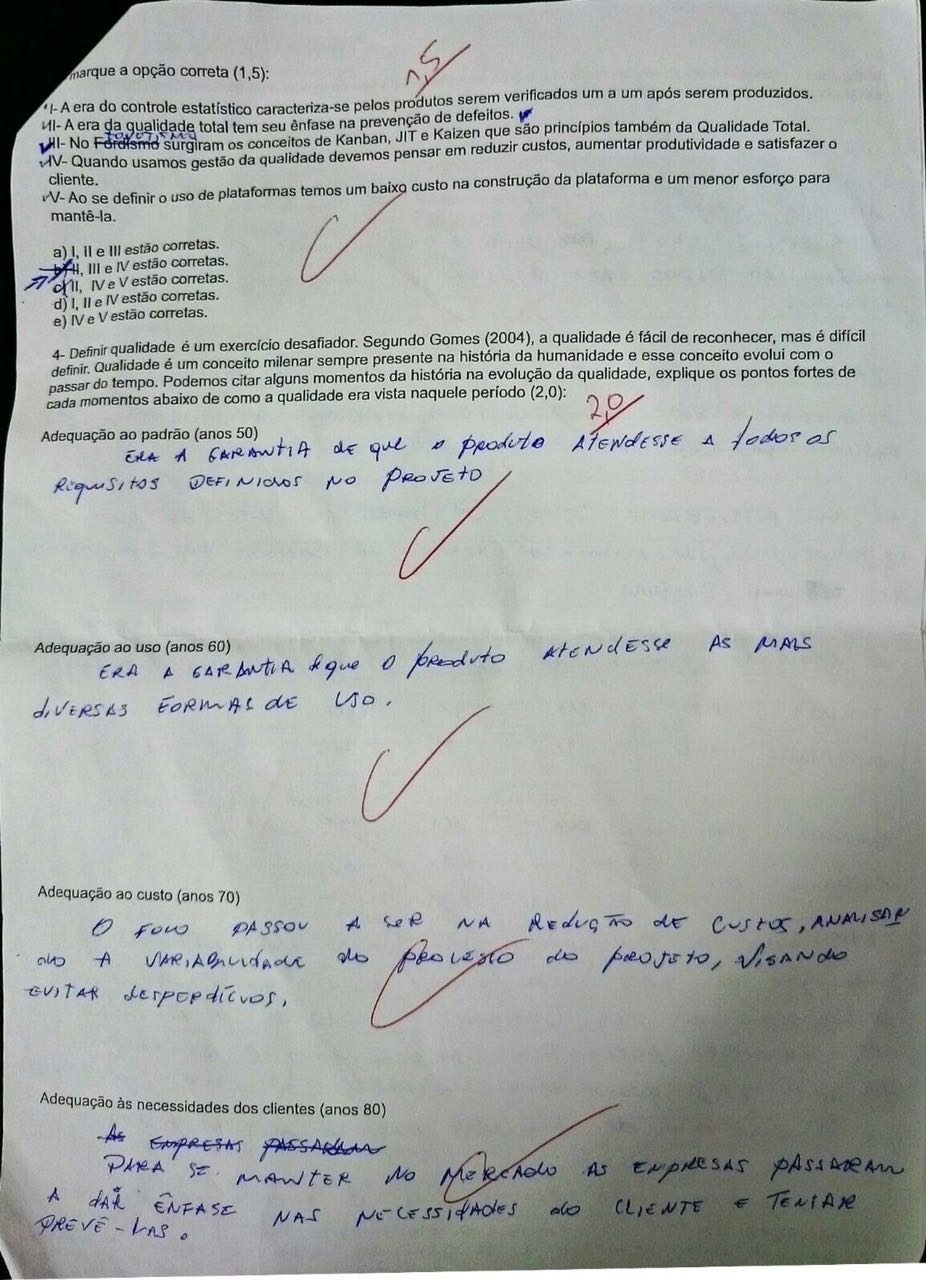 marque a opção correta (1,5):
1,5
I- A era do controle estatístico caracteriza-se pelos produtos serem verificados um a um após serem produzidos.
II- A era da qualidade total tem seu ênfase na prevenção de defeitos.
TOYOTISMO
III- No Fordismo surgiram os conceitos de Kanban, JIT e Kaizen que são princípios também da Qualidade Total.
IV- Quando usamos gestão da qualidade devemos pensar em reduzir custos, aumentar produtividade e satisfazer o
cliente.
V- Ao se definir o uso de plataformas temos um baixo custo na construção da plataforma e um menor esforço para
mantê-la.
a) I, II e III estão corretas.
b) II, III e IV estão corretas.
c) II, IV e V estão corretas.
d) I, II e IV estão corretas.
e) IV e V estão corretas.
4- Definir qualidade é um exercício desafiador. Segundo Gomes (2004), a qualidade é fácil de reconhecer, mas é difícil
definir. Qualidade é um conceito milenar sempre presente na história da humanidade e esse conceito evolui com o
passar do tempo. Podemos citar alguns momentos da história na evolução da qualidade, explique os pontos fortes de
cada momentos abaixo de como a qualidade era vista naquele período (2,0):
2,0
Adequação ao padrão (anos 50)
ERA A GARANTIA de que o PRODUTO ATENDESSE A todos os
REQUISITOS DEFINIDOS NO PROJETO
Adequação ao uso (anos 60)
ERA A GARANTIA de que O PRODUTO ATENDESSE AS MAIS
DIVERSAS FORMAS DE USO.
Adequação ao custo (anos 70)
O FOCO PASSOU A SER NA REDUÇÃO DE CUSTOS, ANALISAN
do A VARIABILIDADE do PROCESSO do PROJETO, VISANDO
EVITAR desperdícios.
Adequação às necessidades dos clientes (anos 80)
AS EMPRESAS PASSARAM
PARA SE MANTER NO MERCADO AS EMPRESAS PASSARAM
A DAR ÊNFASE NAS NECESSIDADES do CLIENTE E TENTAR
PREVÊ-LAS.